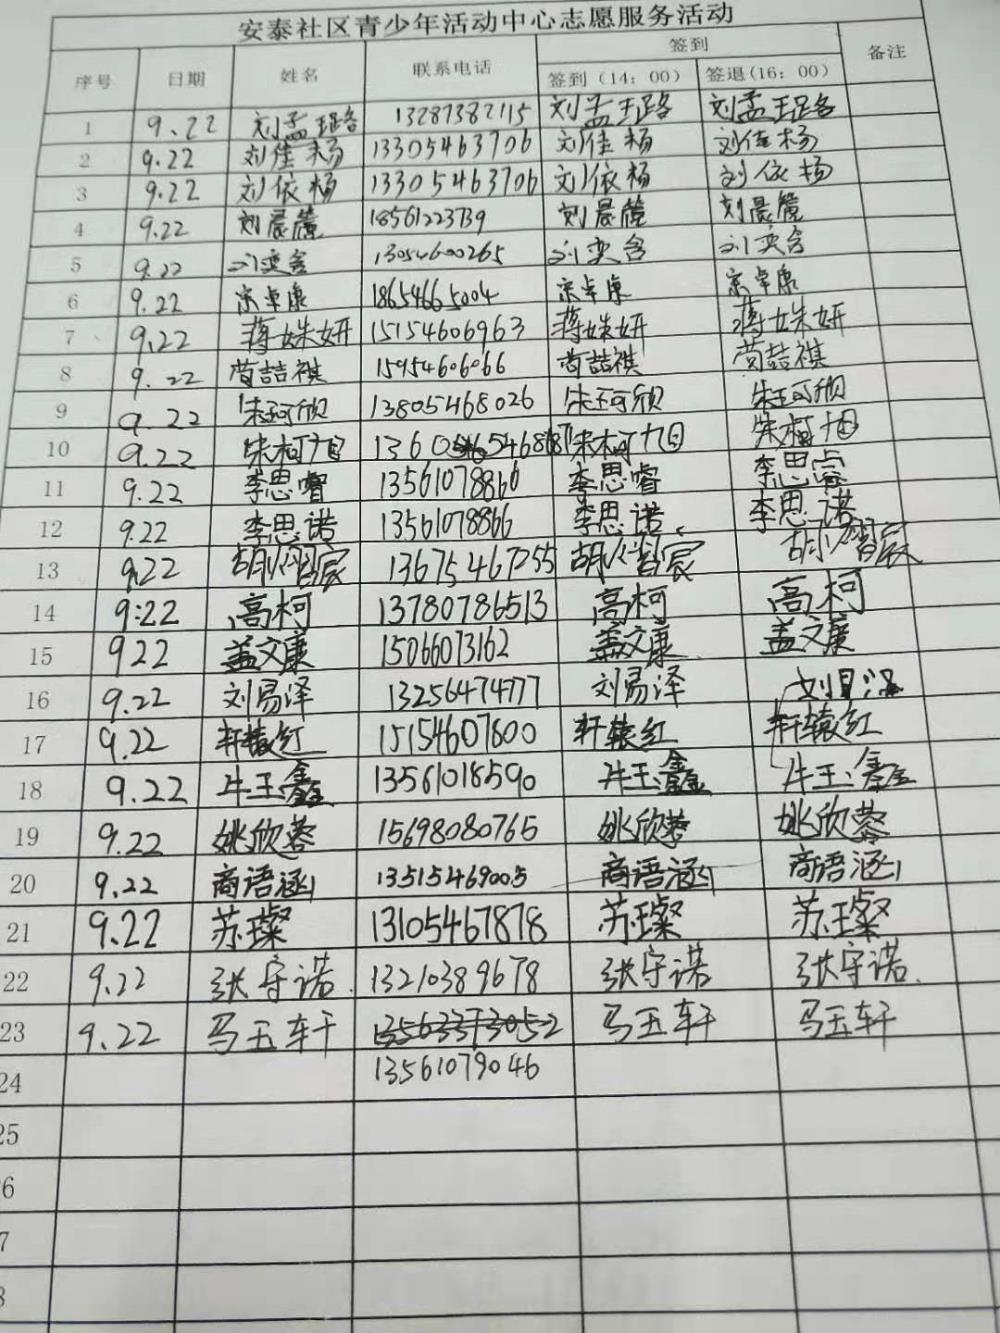 安泰社区青少年活动中心志愿服务活动
序号 日期 姓名 联系电话 签到 备注
签到（14：00） 签退(16：00)
1 9.22 刘孟璐 13287382115 刘孟璐 刘孟璐
2 9.22 刘佳杨 13305463706 刘佳杨 刘佳杨
3 9.22 刘依杨 13305463706 刘依杨 刘依杨
4 9.22 刘晨 18561223739 刘晨 刘晨
5 9.22 刘奕含 13054600265 刘奕含 刘奕含
6 9.22 宗卓康 18654665004 宗卓康 宗卓康
7 9.22 蒋姝妍 15154606963 蒋姝妍 蒋姝妍
8 9.22 苟喆祺 15954606066 苟喆祺 苟喆祺
9 9.22 朱珂欣 13805468026 朱珂欣 朱珂欣
10 9.22 朱柯旭 朱柯旭 朱柯旭
11 9.22 李思睿 13561078866 李思睿 李思睿
12 9.22 李思诺 13561078866 李思诺 李思诺
13 9.22 胡 宸 13675467255 胡 宸 胡 宸
14 9:22 高柯 13780786513 高柯 高柯
15 922 盖文康 15066073162 盖文康 盖文康
16 9.22 刘易泽 13256474777 刘易泽 刘易泽
17 9.22 轩辕红 15154607800 轩辕红 轩辕红
18 9.22 牛玉鑫 13561018590 牛玉鑫 牛玉鑫
19 9.22 姚欣蓉 15698080765 姚欣蓉 姚欣蓉
20 9.22 商语涵 13515469005 商语涵 商语涵
21 9.22 苏璨 13105467878 苏璨 苏璨
22 9.22 张守诺 13210389678 张守诺 张守诺
23 9.22 马玉轩 13563373052 马玉轩 马玉轩
24 13561079046
25
6
7
8